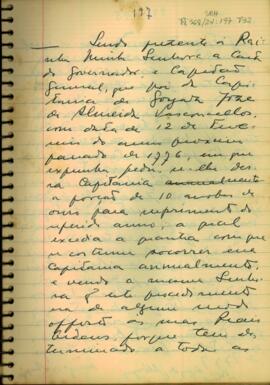 197
— Sendo presente á Rai-
nha Minha Senhora a Carta do
Governador, e Capitão
General, que foi da Capi-
tania de Goyaz Joze
de Almeida Vasconcellos,
com data de 12 de Feve-
reiro do anno proximo
passado de 1776, em que
expunha, pedir, se lhe des
Capitania annualmente
a porção de 10 arrobas de
ouro para suprimento do
referido anno, a qual
excedia a quantia com que
se costuma socorrer essa
Capitania annualmente,
e vendo a mesma Senho-
ra q este procedimento
de algum modo
as suas Reaes
Ordens, porque tem de-
terminado a todas as